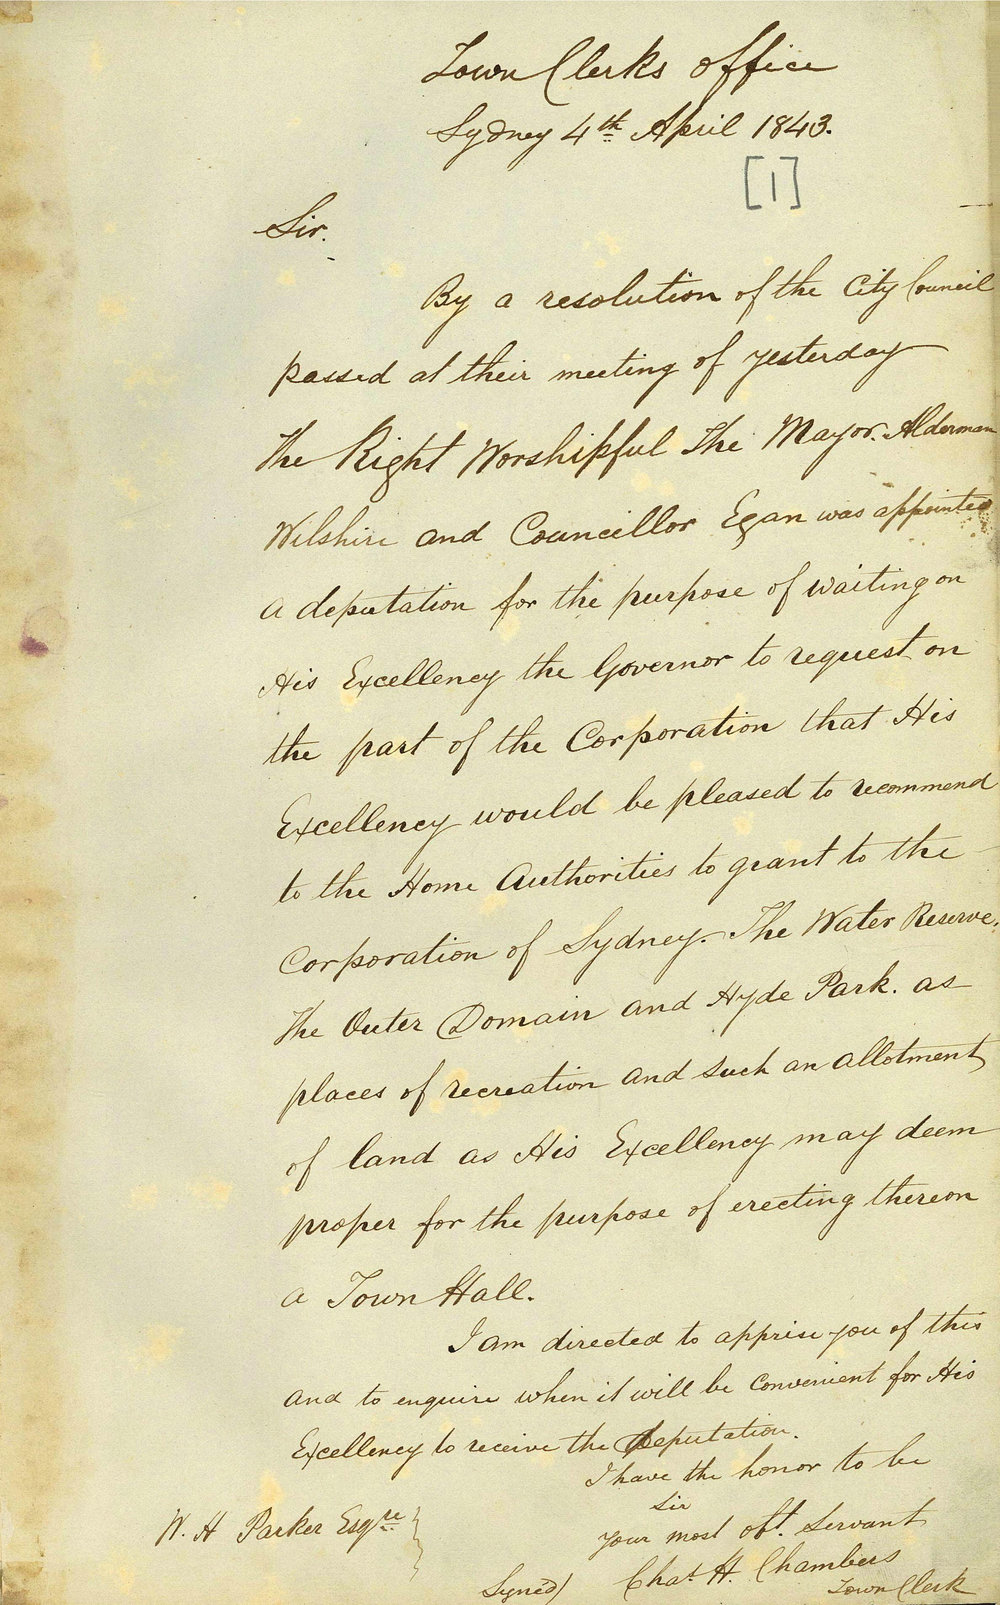 Town Clerks office
Sydney 4th April 1843.
[1]
Sir.
By a resolution of the City Council
passed at their meeting of yesterday
The Right Worshipful The Mayor. Alderman
Wilshire and Councillor Egan was appointed
a deputation for the purpose of waiting on
His Excellency the Governor to request on
the part of the Corporation that His
Excellency would be pleased to recommend
to the Home Authorities to grant to the
Corporation of Sydney. The Water Reserve.
The Outer Domain and Hyde Park. as
places of recreation and such an allotment
of land as His Excellency may deem
proper for the purpose of erecting thereon
a Town Hall.
I am directed to apprise you of this
and to enquire when it will be convenient for His
Excellency to receive the Deputation.
I have the honor to be
Sir
your most obt. Servant
W. H Parker Esqre
Signed) Chas. H. Chambers
Town Clerk